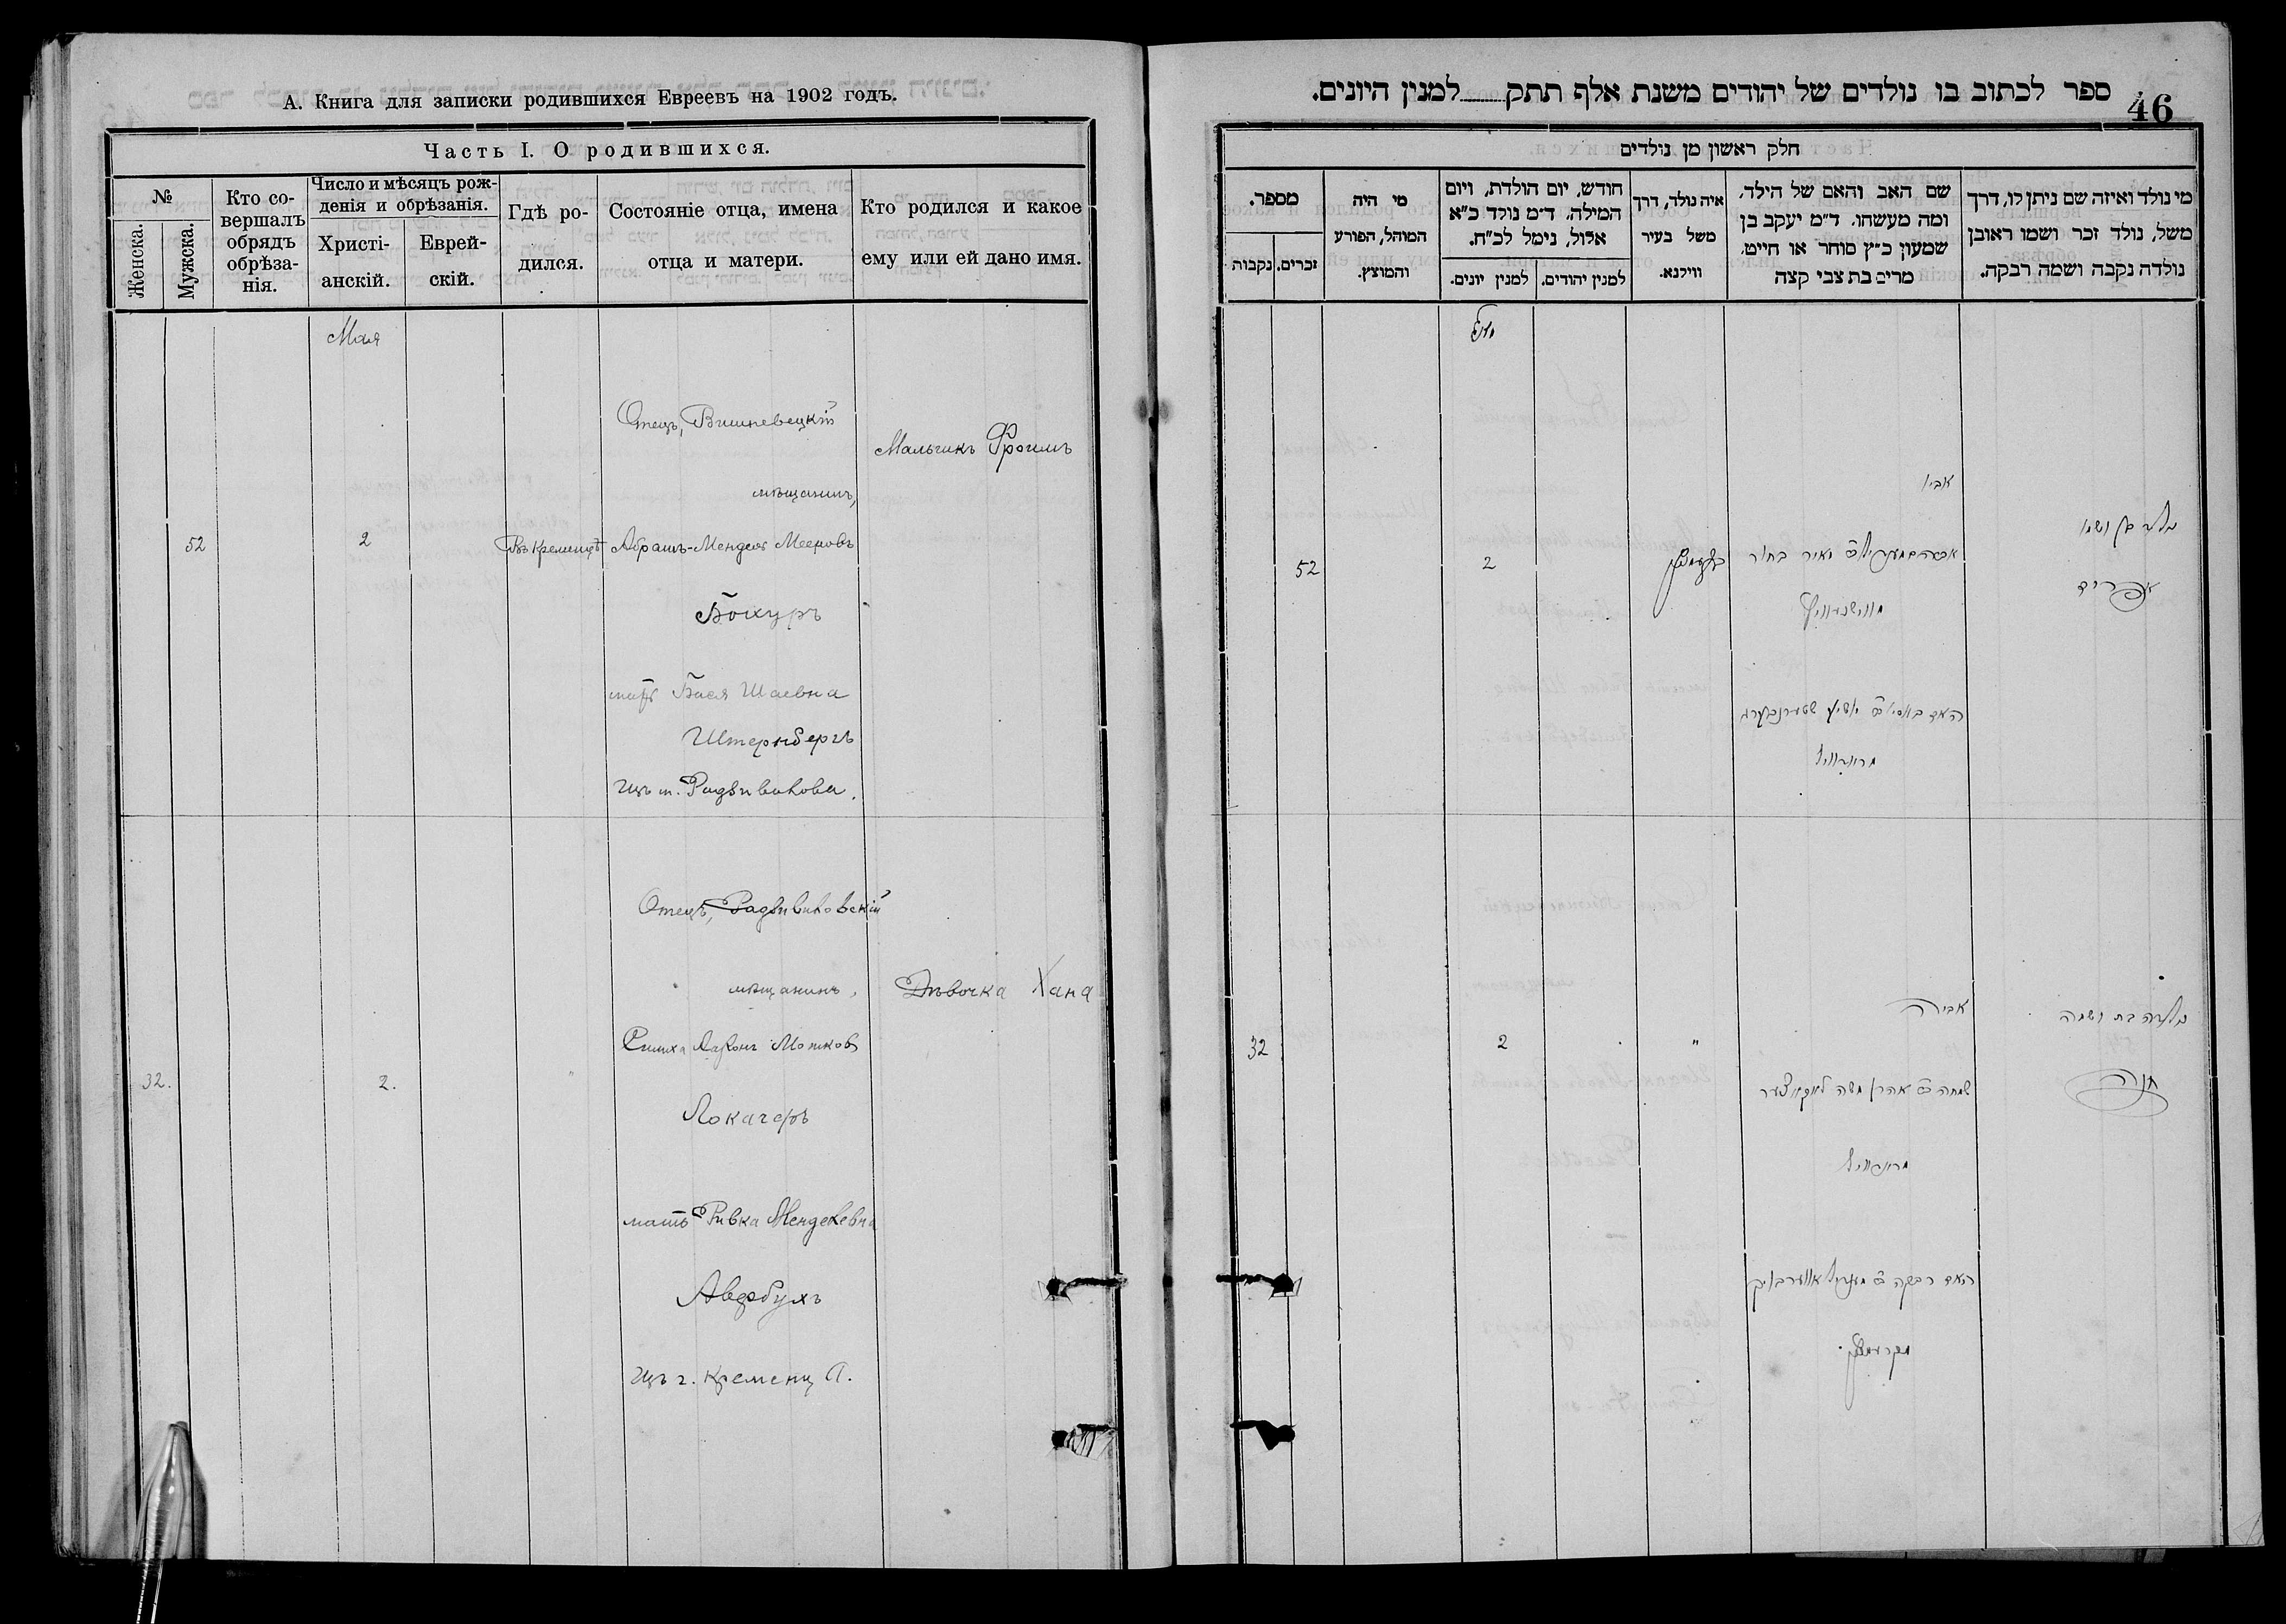 А. Книга для записки родившихся Евреевъ на 1902 годъ.
Часть I. О родившихся.
№
Женска.
Мужска.
Кто со-
вершалъ
обрядъ
обрѣза-
нія.
Число и мѣсяцъ рож-
денія и обрѣзанія.
Христі-
анскій.
Еврей-
скій.
Гдѣ ро-
дился.
Состояніе отца, имена
отца и матери.
Кто родился и какое
ему или ей дано имя.
Мая
Отецъ, Вишневецкій
Мальчикъ Фроимъ
мѣщанинъ,
52
2
Въ Кременцѣ
Абрамъ-Мендель Мееровъ
Бохуръ
мать Бася Шаевна
Штернбергъ
изъ м. Радзивилова.
Отецъ, Радзивиловскій
мѣщанинъ,
Дѣвочка Хана
Симха Ааронъ Мошков
32.
2.
"
Локачеръ
мать Ривка Менделевна
Авербухъ
Изъ г. Кременца.
ספר לכתוב בו נולדים של יהודים משנת אלף תתק למנין היונים.
46
חלק ראשון מן נולדים
מספר.
זכרים.
נקבות
מי היה
המוהל, הפורע
והמוצץ.
חודש, יום הולדת, ויום
המילה. ד״מ נולד כ״א
אלול, נימל לכ״ח.
למנין יונים.
למנין יהודים.
איה נולד, דרך
משל בעיר
ווילנא.
שם האב והאם של הילד.
ומה מעשהו. ד״מ יעקב בן
שמעון כ״ץ סוחר או חייט.
מרים בת צבי קצה
מי נולד ואיזה שם ניתן לו, דרך
משל, נולד זכר ושמו ראובן
נולדה נקבה ושמה רבקה.
מאי
אביו
נולד בן ושמו
52
2
מאיר בחור
אפרים
האם באסיא
שטערנבערג
אביה
נולדה בת ושמה
32
2
"
שמחה אהרן משה לאקאטשער
חנה
האם רבקה מענדיל אווערבוך